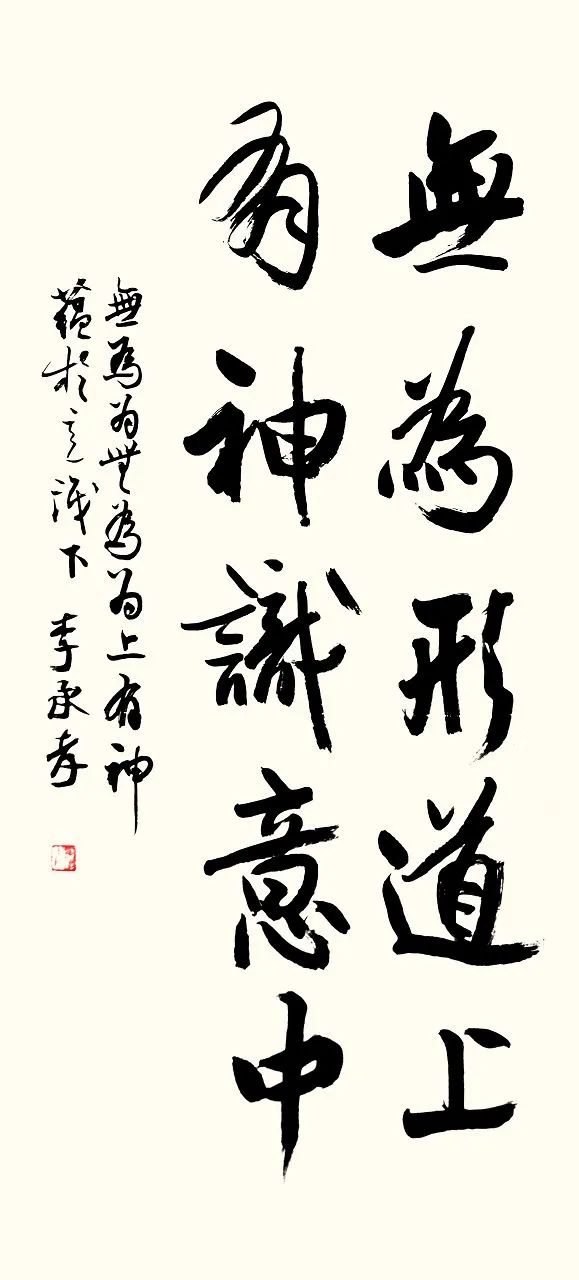 無為形道上
有神識意中
無為为無為为上有神
蘊於意識下 李承孝